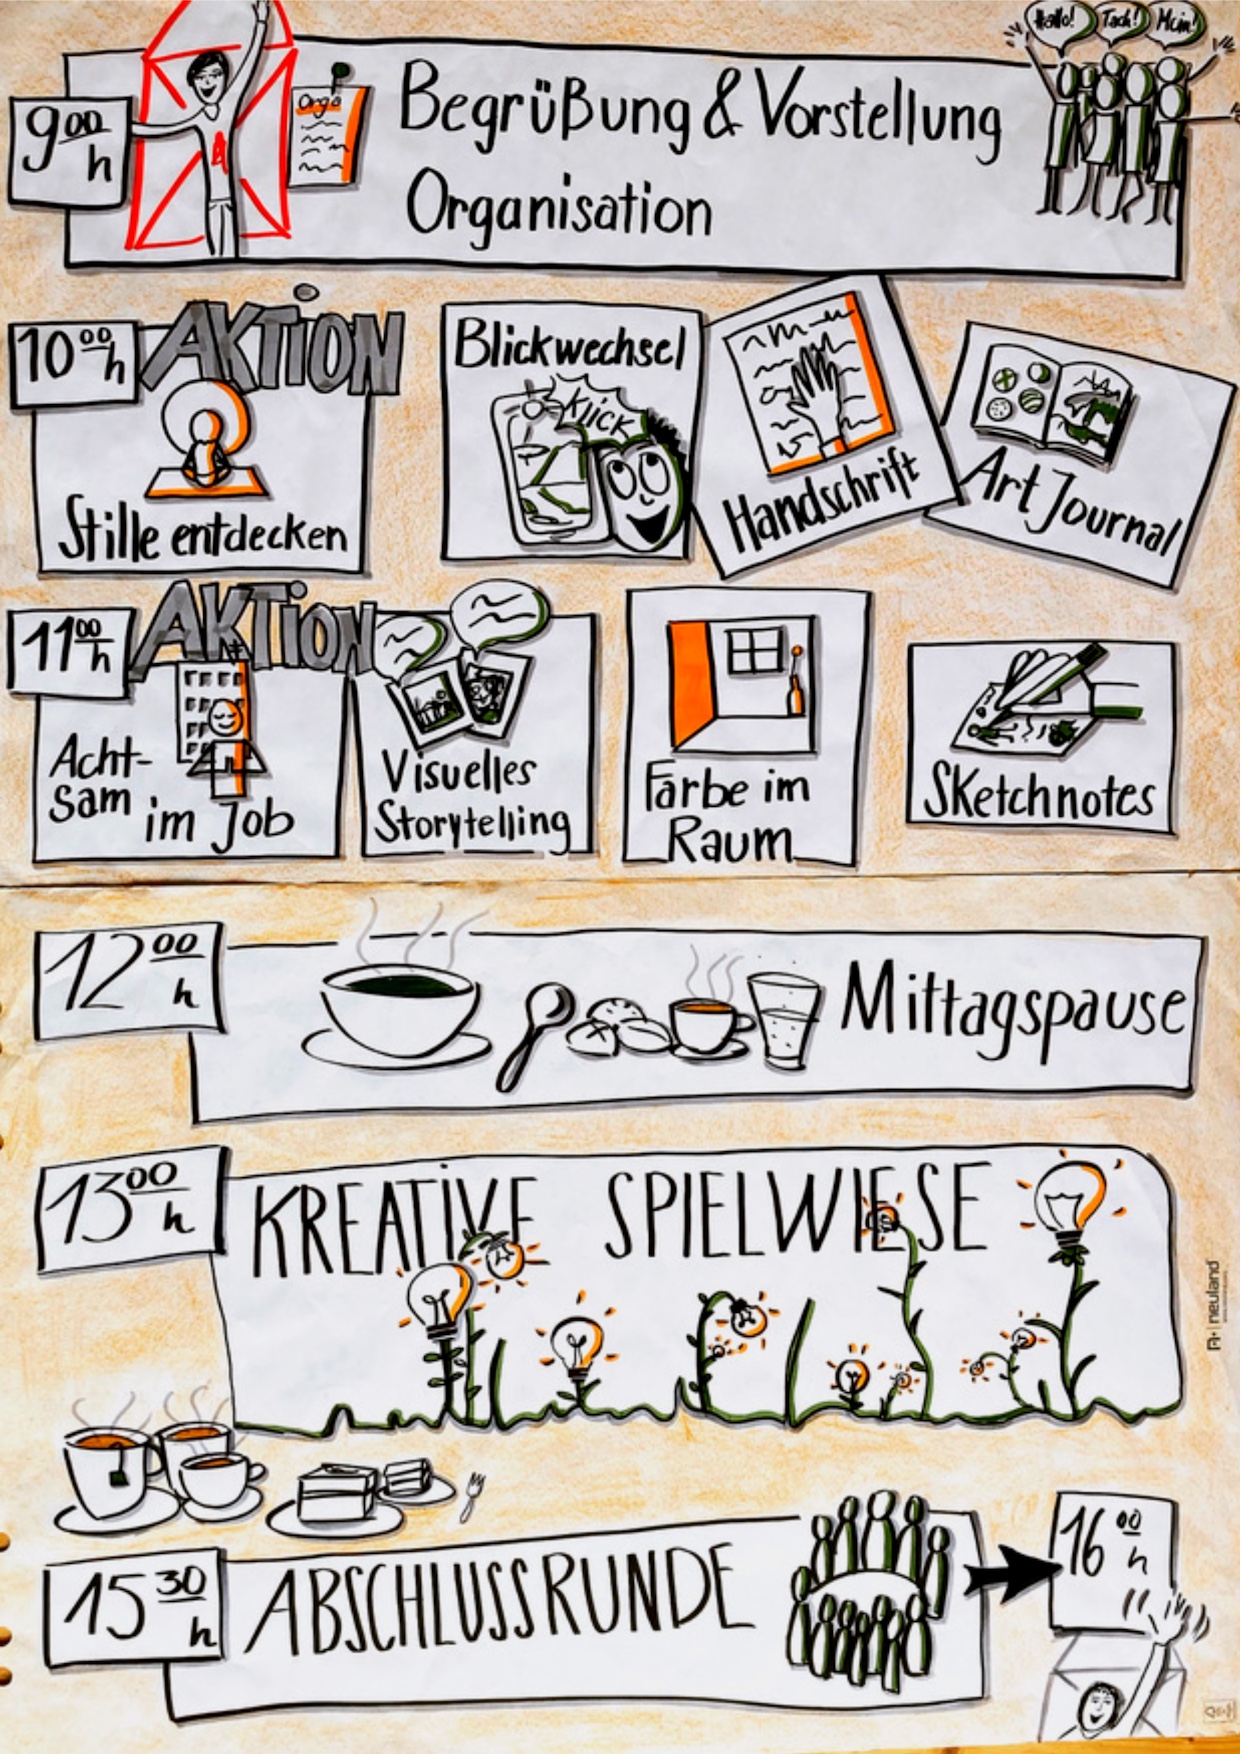 Hallo! Tach! Moin!
9 00 h
Orga
Begrüßung & Vorstellung
Organisation
10 00 h
AKTION
Stille entdecken
Blickwechsel
KLICK
Handschrift
Art Journal
11 00 h
AKTION
Acht-
sam im Job
Visuelles
Storytelling
Farbe im
Raum
SKetchnotes
12 00 h
Mittagspause
13 00 h
KREATIVE SPIELWIESE
neuland
15 30 h
ABSCHLUSSRUNDE
16 00 h